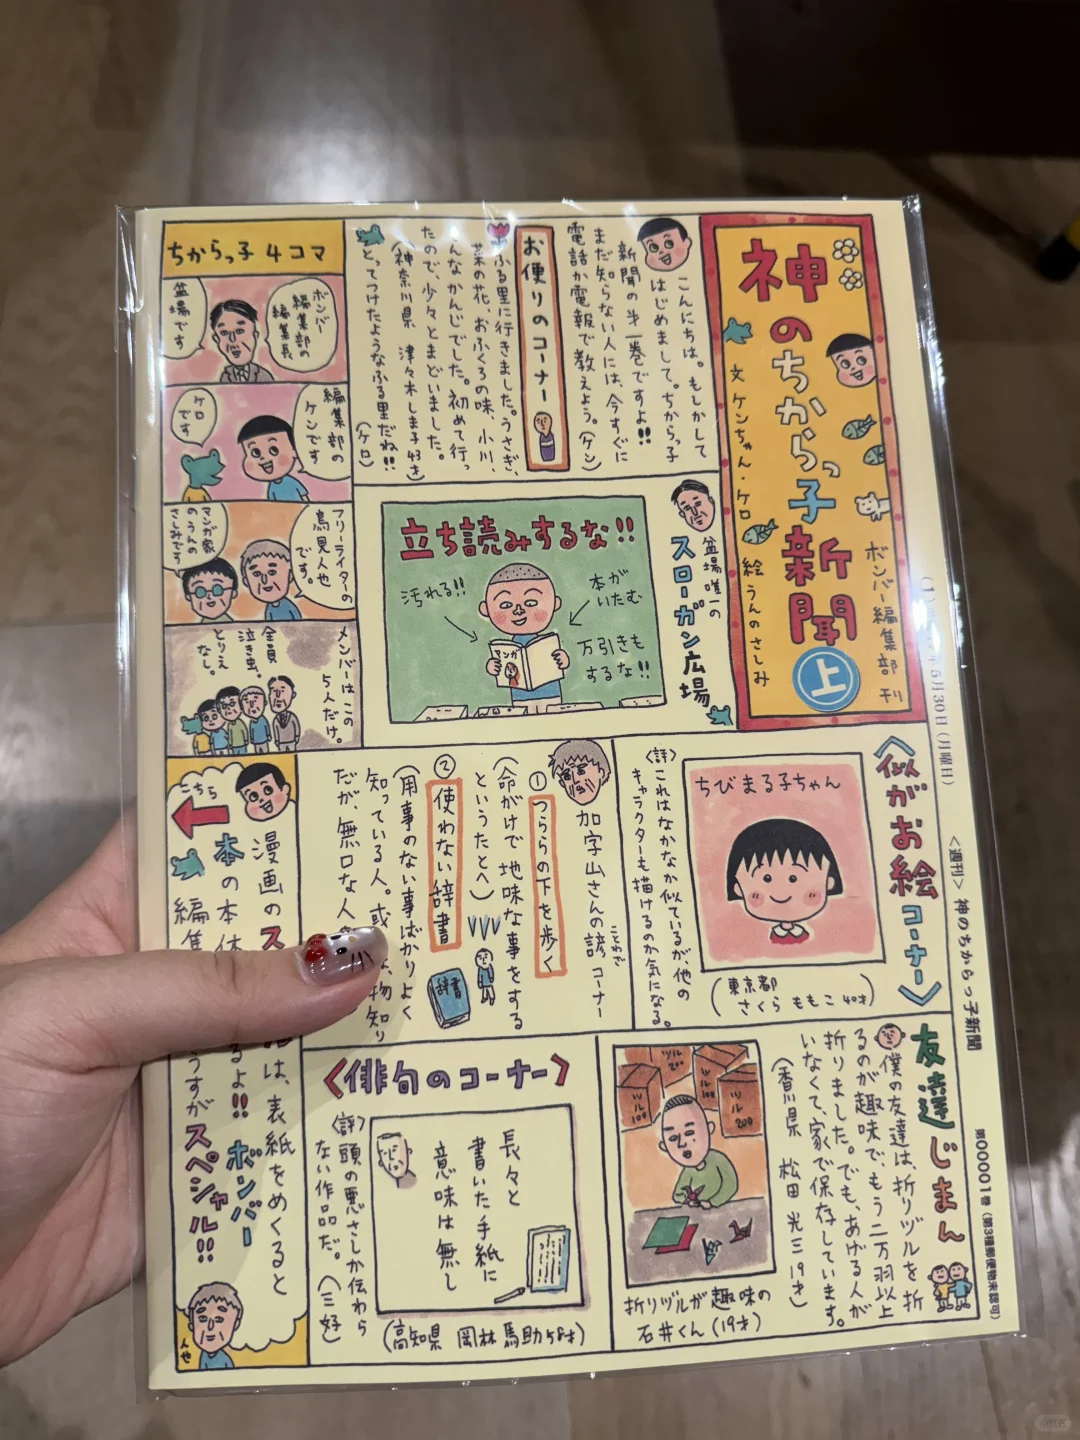 神のちからっ子新聞
上
文 ケンちゃん・ケロ
絵 うんのさしみ
ボンバー編集部 刊
こんにちは。もしかして
はじめまして。ちからっ子
新聞の第一巻ですよ!!
まだ知らない人には、今すぐに
電話か電報で教えよう。(ケン)
お便りのコーナー
ふる里に行きました。うさぎ、
菜の花、おふくろの味、小川、
そんなかんじでした。初めて行っ
たので、少々とまどいました。
(神奈川県 津々木しま子43才)
とってつけたようなふる里だね!!
(ケロ)
ちからっ子 4コマ
ボンバー
編集部の
編集長
盆場です
編集部の
ケンです
ケロ
です
フリーライターの
鳥見人也
です。
マンガ家
のうんの
さしみです
メンバーはこの
5人だけ。
全員
泣き虫、
とりえ
なし。
盆場唯一の
スローガン広場
立ち読みするな!!
汚れる!!
本が
いたむ
万引きも
するな!!
マンガ
5月30日(月曜日)
<週刊> 神のちからっ子新聞
第00001巻(第3種郵便物未認可)
〈似がお絵コーナー〉
ちびまる子ちゃん
(東京都
さくらももこ 40才)
(評)これはなかなか似ているが、他の
キャラクターも描けるのか気になる。
加字山さんの諺コーナー
ことわざ
① つららの下を歩く
(命がけで地味な事をする
というたとへ)
② 使わない辞書
(用事のない事ばかりよく
知っている人。或
物知り
だが、無口な人
辞書
こちら
漫画のス
本の本体
は、表紙をめくると
るよ!! ボンバー
編集
うすがスペシャル!!
人也
〈俳句のコーナー〉
長々と
書いた手紙に
意味は無し
(高知県 岡林馬助58才)
(評)頭の悪さしか伝わら
ない作品だ。(三好)
友達じまん
僕の友達は、折りヅルを折
るのが趣味で、もう二万羽以上
折りました。でも、あげる人が
いなくて、家で保存しています。
(香川県 松田光三19才)
ツル
200
ツル
100
ツル
100
ツル
200
折リヅルが趣味の
石井くん(19才)